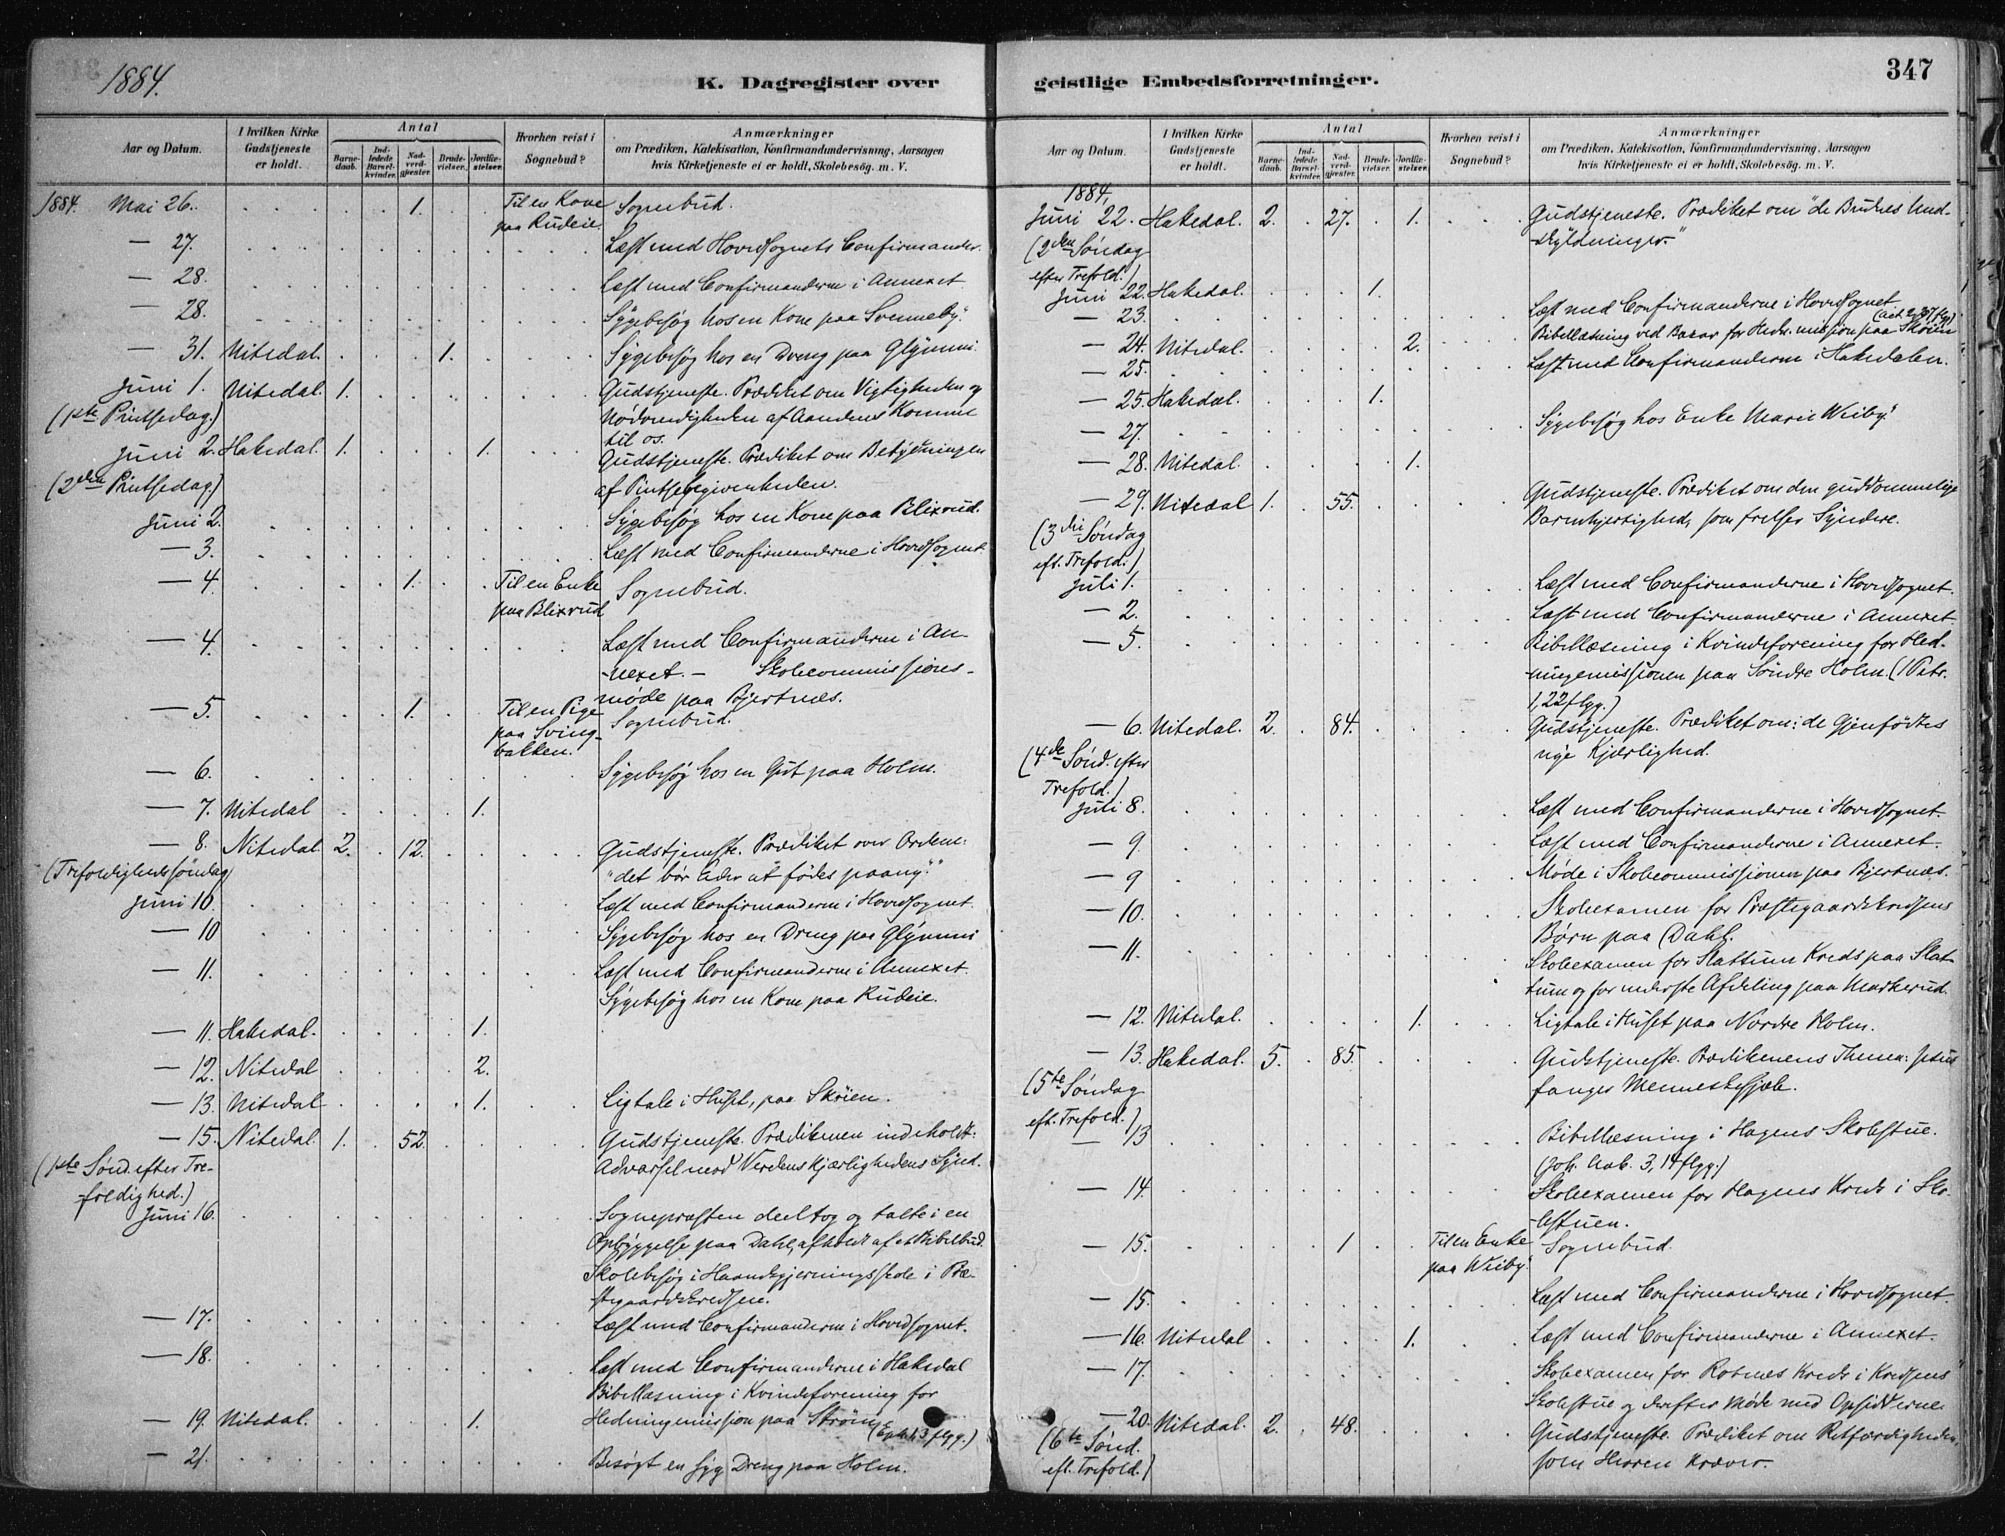 1884.
K. Dagregister over
Aar og Datum.
I hvilken Kirke Gudstjeneste er holdt.
Antal
Barnedaab.
Indledede Barselkvinder.
Nadverdgjester.
Brudevielser.
Jordfæstelser.
Hvorhen reist i Sognebud?
Anmærkninger
om Prædiken, Katekisation, Konfirmandundervisning, Aarsagen
hvis Kirketjeneste ei er holdt, Skolebesøg. m. V.
1884. Mai 26. 1. Til en Kone Sognebud.
paa Rudeie.
— 27. Læst med Hovedsognets Confirmander.
— 28. Læst med Confirmanderne i Annexet
— 28. Sygebesøg hos en Kone paa Svenneby.
— 31. Nitedal. 1. Sygebesøg hos en Dreng paa Glymmi
Juni 1. Nitedal. 1. Gudstjeneste. Prædiket om Vigtigheden og
(1ste Pintsedag.) Nødvendigheden af Aandens Komme
til os.
Juni 2. Hakedal. 1. 1. Gudstjeneste. Prædiket om Betydningen
(2den Pintsedag.) af Pintsebegivenheden.
Juni 2. Sygebesøg hos en Kone paa Blixrud.
— 3. Læst med Confirmanderne i Hovedsognet.
— 4. 1. Til en Enke Sognebud.
paa Blixrud
— 4. Læst med Confirmanderne i An-
-nexet. — Skolecommissions-
møde paa Bjertnæs.
— 5. 1. Til en Pige Sognebud.
paa Sving-
bakken.
— 6. Sygebesøg hos en Gut paa Holm.
— 7. Nitedal 1.
— 8. Nitedal. 2. 12. Gudstjeneste. Prædiket over Ordene:
(Trefoldighedssøndag) "det bør Eder at fødes paany."
Juni 10. Læst med Confirmanderne i Hovedsognet.
— 10 Sygebesøg hos en Dreng paa Glymmi
— 11. Læst med Confirmanderne i Annexet.
Sygebesøg hos en Kone paa Rudeie.
— 11. Hakedal. 1.
— 12. Nitedal 2.
— 13. Nitedal 1. Ligtale i Huset, paa Skøien.
— 15. Nitedal. 1. 52. Gudstjeneste. Prædikenen indeholdt:
(1ste Sønd. efter Tre- Advarsel mod Verdenskjærlighedens Synd.
-foldighed.)
Juni 16. Sognepræsten deeltog og talte i en
Opbyggelse paa Dahl, afholdt af et Bibelbud.
Skolebesøg i Haandgjerningsskole i Præ-
stegaardskredsen.
— 17. Læst med Confirmanderne i Hovedsognet.
— 18. Læst med Confirmanderne i Hakedal
Bibellæsning i Kvindeforening for
— 19. Nitedal. 1. Hedningemission paa Strøm
— 21. Besøgt en syg Dreng paa Holm.
geistlige Embedsforretninger.
347
Aar og Datum.
I hvilken Kirke Gudstjeneste er holdt.
Antal
Barnedaab.
Indledede Barselkvinder.
Nadverdgjester.
Brudevielser.
Jordfæstelser.
Hvorhen reist i Sognebud?
Anmærkninger
om Prædiken, Katekisation, Konfirmandundervisning. Aarsagen
hvis Kirketjeneste ei er holdt, Skolebesøg. m. V.
1884.
Juni 22. Hakedal. 2. 27. 1. Gudstjeneste. Prædiket om "de Budnes Und-
(2den Søndag -skyldninger."
efter Trefold.)
Juni 22. Hakedal. 1.
— 23. Læst med Confirmanderne i Hovedsognet
— 24. Nitedal. 2. Bibellæsning ved Bazar for Hedn. mission paa Skøien
— 25. Læst med Confirmanderne i Hakedalen.
— 25. Hakedal. 1.
— 27. Sygebesøg hos Enke Marie Weiby.
— 28. Nitedal. 1.
— 29. Nitedal 1. 55. Gudstjeneste. Prædiket om den guddommelige
(3die Søndag Barmhjertighed, som frelser Syndere.
eft. Trefold.)
Juli 1. Læst med Confirmanderne i Hovedsognet.
— 2. Læst med Confirmanderne i Annexet
— 5. Bibellæsning i Kvindeforening for Hed-
ningemissionen paa Søndre Holm. (1 Petr.
1, 22 flgg.)
— 6. Nitedal. 2. 84. Gudstjeneste. Prædiket om: de Gjenfødtes
(4de Sønd. efter nye Kjærlighed.
Trefold.)
Juli 8. Læst med Confirmanderne i Hovedsognet.
— 9. Læst med Confirmanderne i Annexet.
— 9 Møde i Skolecommissionen paa Bjertnæs.
— 10. Skoleexamen for Præstegaardskredsens
Børn paa Dahl.
— 11. Skoleexamen for Slattum Kreds paa Slat-
tum og for nederste Afdeling paa Markerud.
— 12. Nitedal. 1. Ligtale i Huset paa Nordre Holm.
— 13. Hakedal. 5. 85. Gudstjeneste. Prædikenens Thema: Jesus
(5te Søndag fanger Menneskesjæle.
eft. Trefold.)
— 13 Bibellæsning i Hagens Skolestue.
(Joh. Aab. 3, 14 flgg.)
— 14. Skoleexamen for Hagens Kreds i Sko-
lestuen.
— 15. 1 Til en Enke Sognebud.
paa Weiby.
— 15. Læst med Confirmanderne i Hovedsognet.
— 16. Nitedal 1. Læst med Confirmanderne i Annexet.
— 17. Skoleexamen for Rotnæs Kreds i Kredsens
Skolestue og derefter Møde med Opsidderne
— 20. Nitedal. 2. 48. Gudstjeneste. Prædiket om Retfærdigheden,
(6te Sønd. som Herren kræver.
eft. Trefold.)